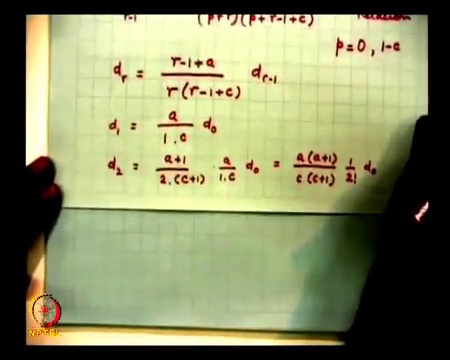 r-1 (p+r)(p+r-1+c) Relation
p=0, 1-c
d_r = (r-1+a) / (r(r-1+c)) d_{r-1}
d_1 = a / (1.c) d_0
d_2 = (a+1) / (2.(c+1)) . a / (1.c) d_0 = (a(a+1)) / (c(c+1)) 1/2! d_0
NPTEL